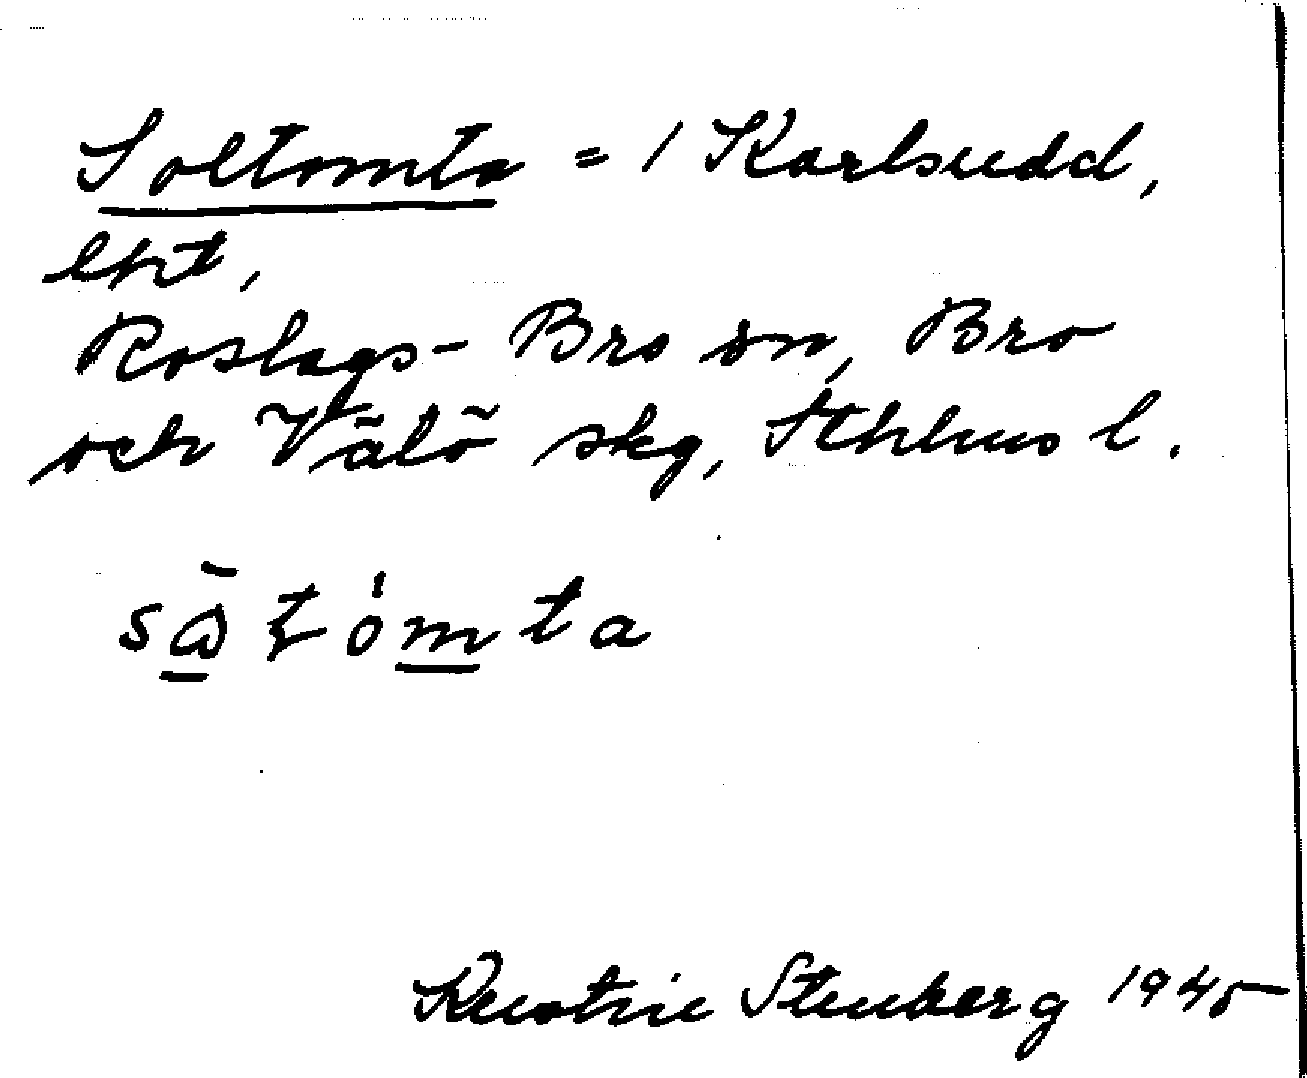 Soltomta = 1 Karlsudd,
lht,
Roslags-Bro sn, Bro
och Vätö skg, Sthlms l.
sātómta
Kerstin Stenberg 1945